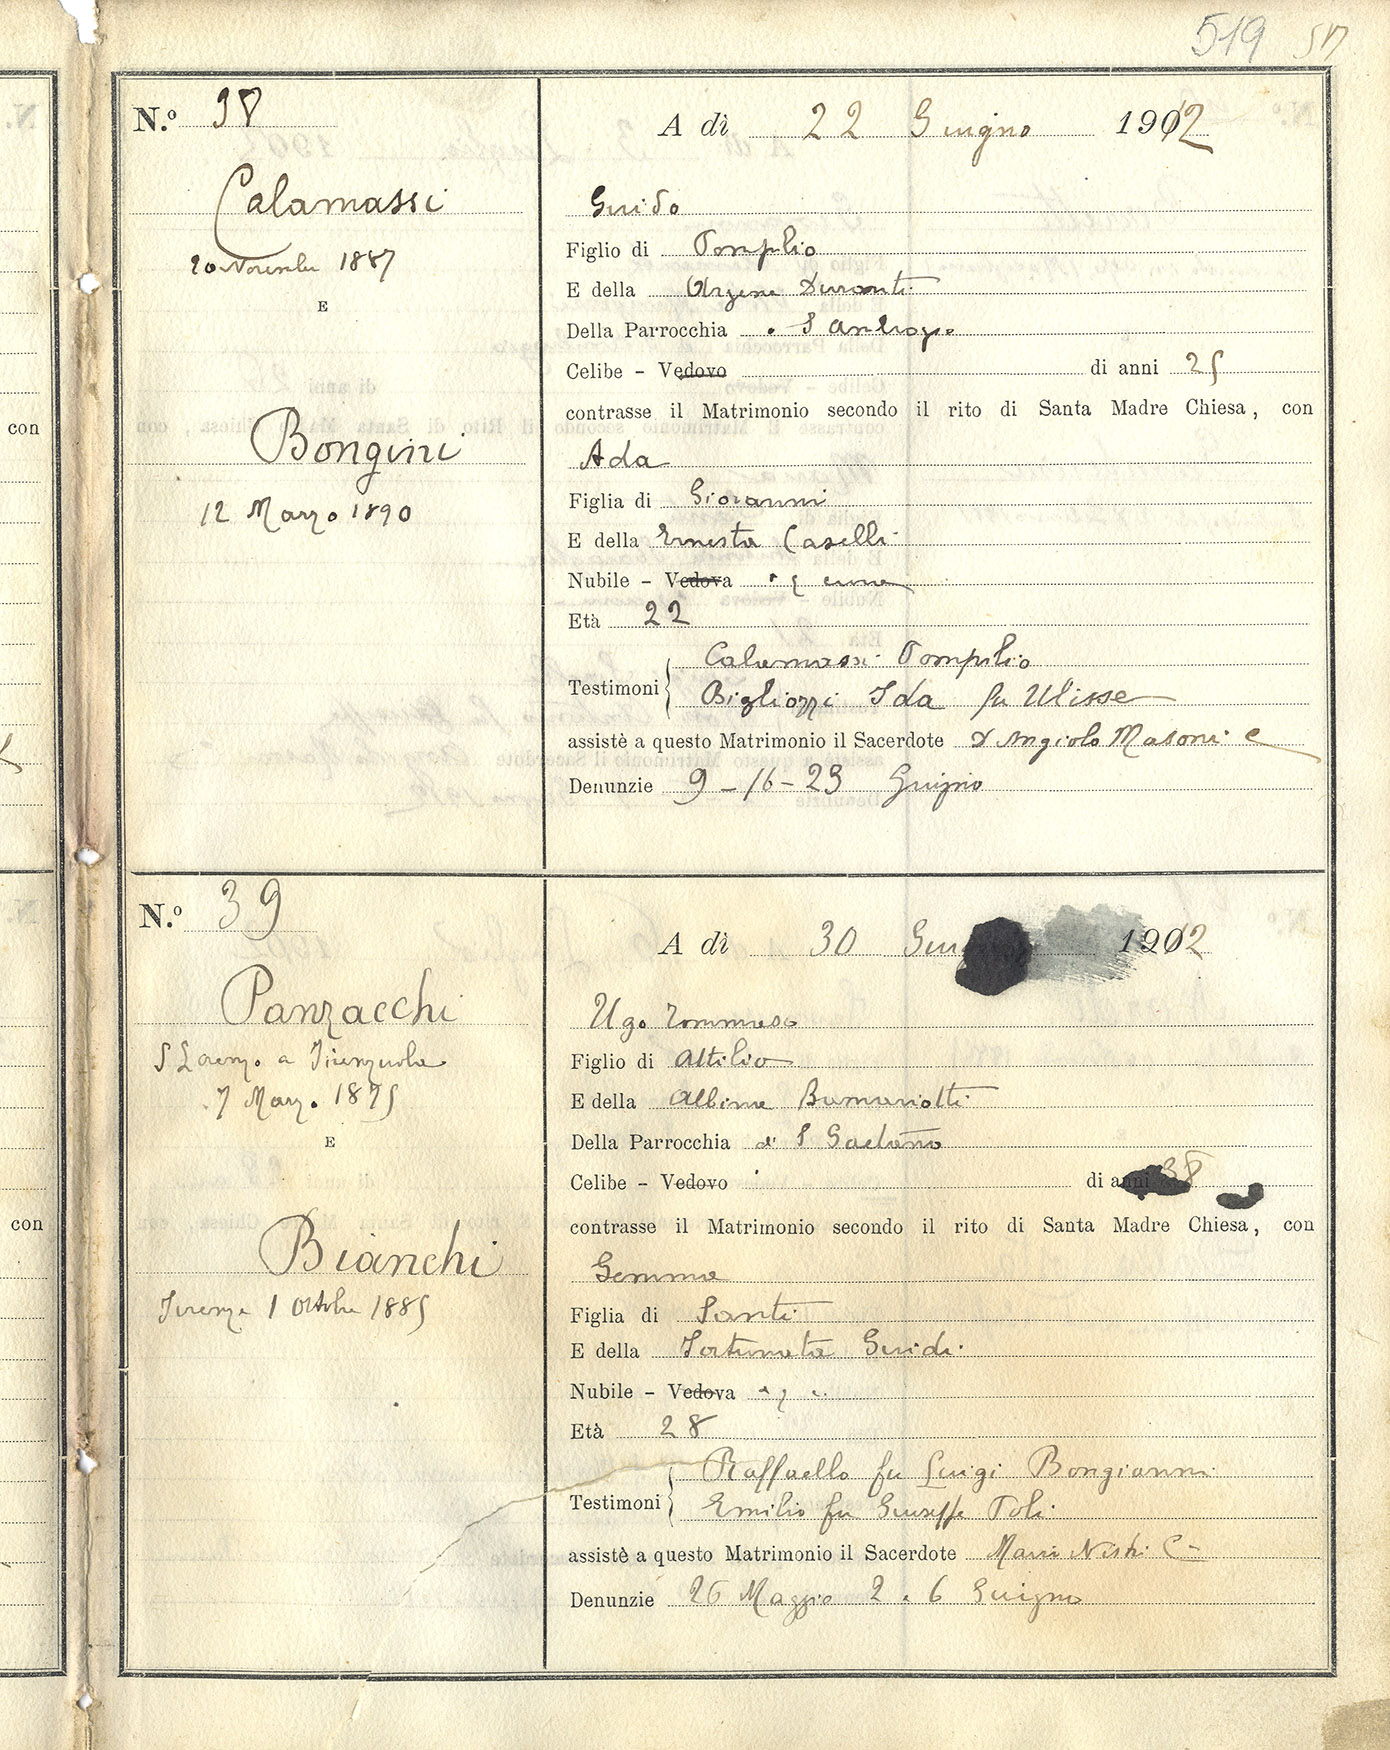 519 517
N.º 38
Calamassi
20 Novembre 1887
E
Bongini
12 Marzo 1890
A dì 22 Giugno 1912
Guido
Figlio di Pompilio
E della Argene Duranti
Della Parrocchia S Ambrogio
Celibe - Vedovo di anni 25
contrasse il Matrimonio secondo il rito di Santa Madre Chiesa, con
Ada
Figlia di Giovanni
E della Ernesta Caselli
Nubile - Vedova
Età 22
Calamassi Pompilio
Testimoni
Bigliozzi Ida fu Ulisse
assistè a questo Matrimonio il Sacerdote D Angiolo Masoni C
Denunzie 9 - 16 - 23 Giugno
N.º 39
Panzacchi
S Lorenzo a Firenzuola
7 Marzo 1875
E
Bianchi
Firenze 1 Ottobre 1885
A dì 30 Giugno 1912
Ugo Tommaso
Figlio di Attilio
E della Albina
Della Parrocchia di S Gaetano
Celibe - Vedovo di anni 38
contrasse il Matrimonio secondo il rito di Santa Madre Chiesa, con
Gemma
Figlia di Santi
E della Fortunata Guidi
Nubile - Vedova
Età 28
Raffaello fu Luigi Bongianni
Testimoni
Emilio fu Giuseppe Poli
assistè a questo Matrimonio il Sacerdote
Denunzie 26 Maggio 2 . 6 Giugno
con
con